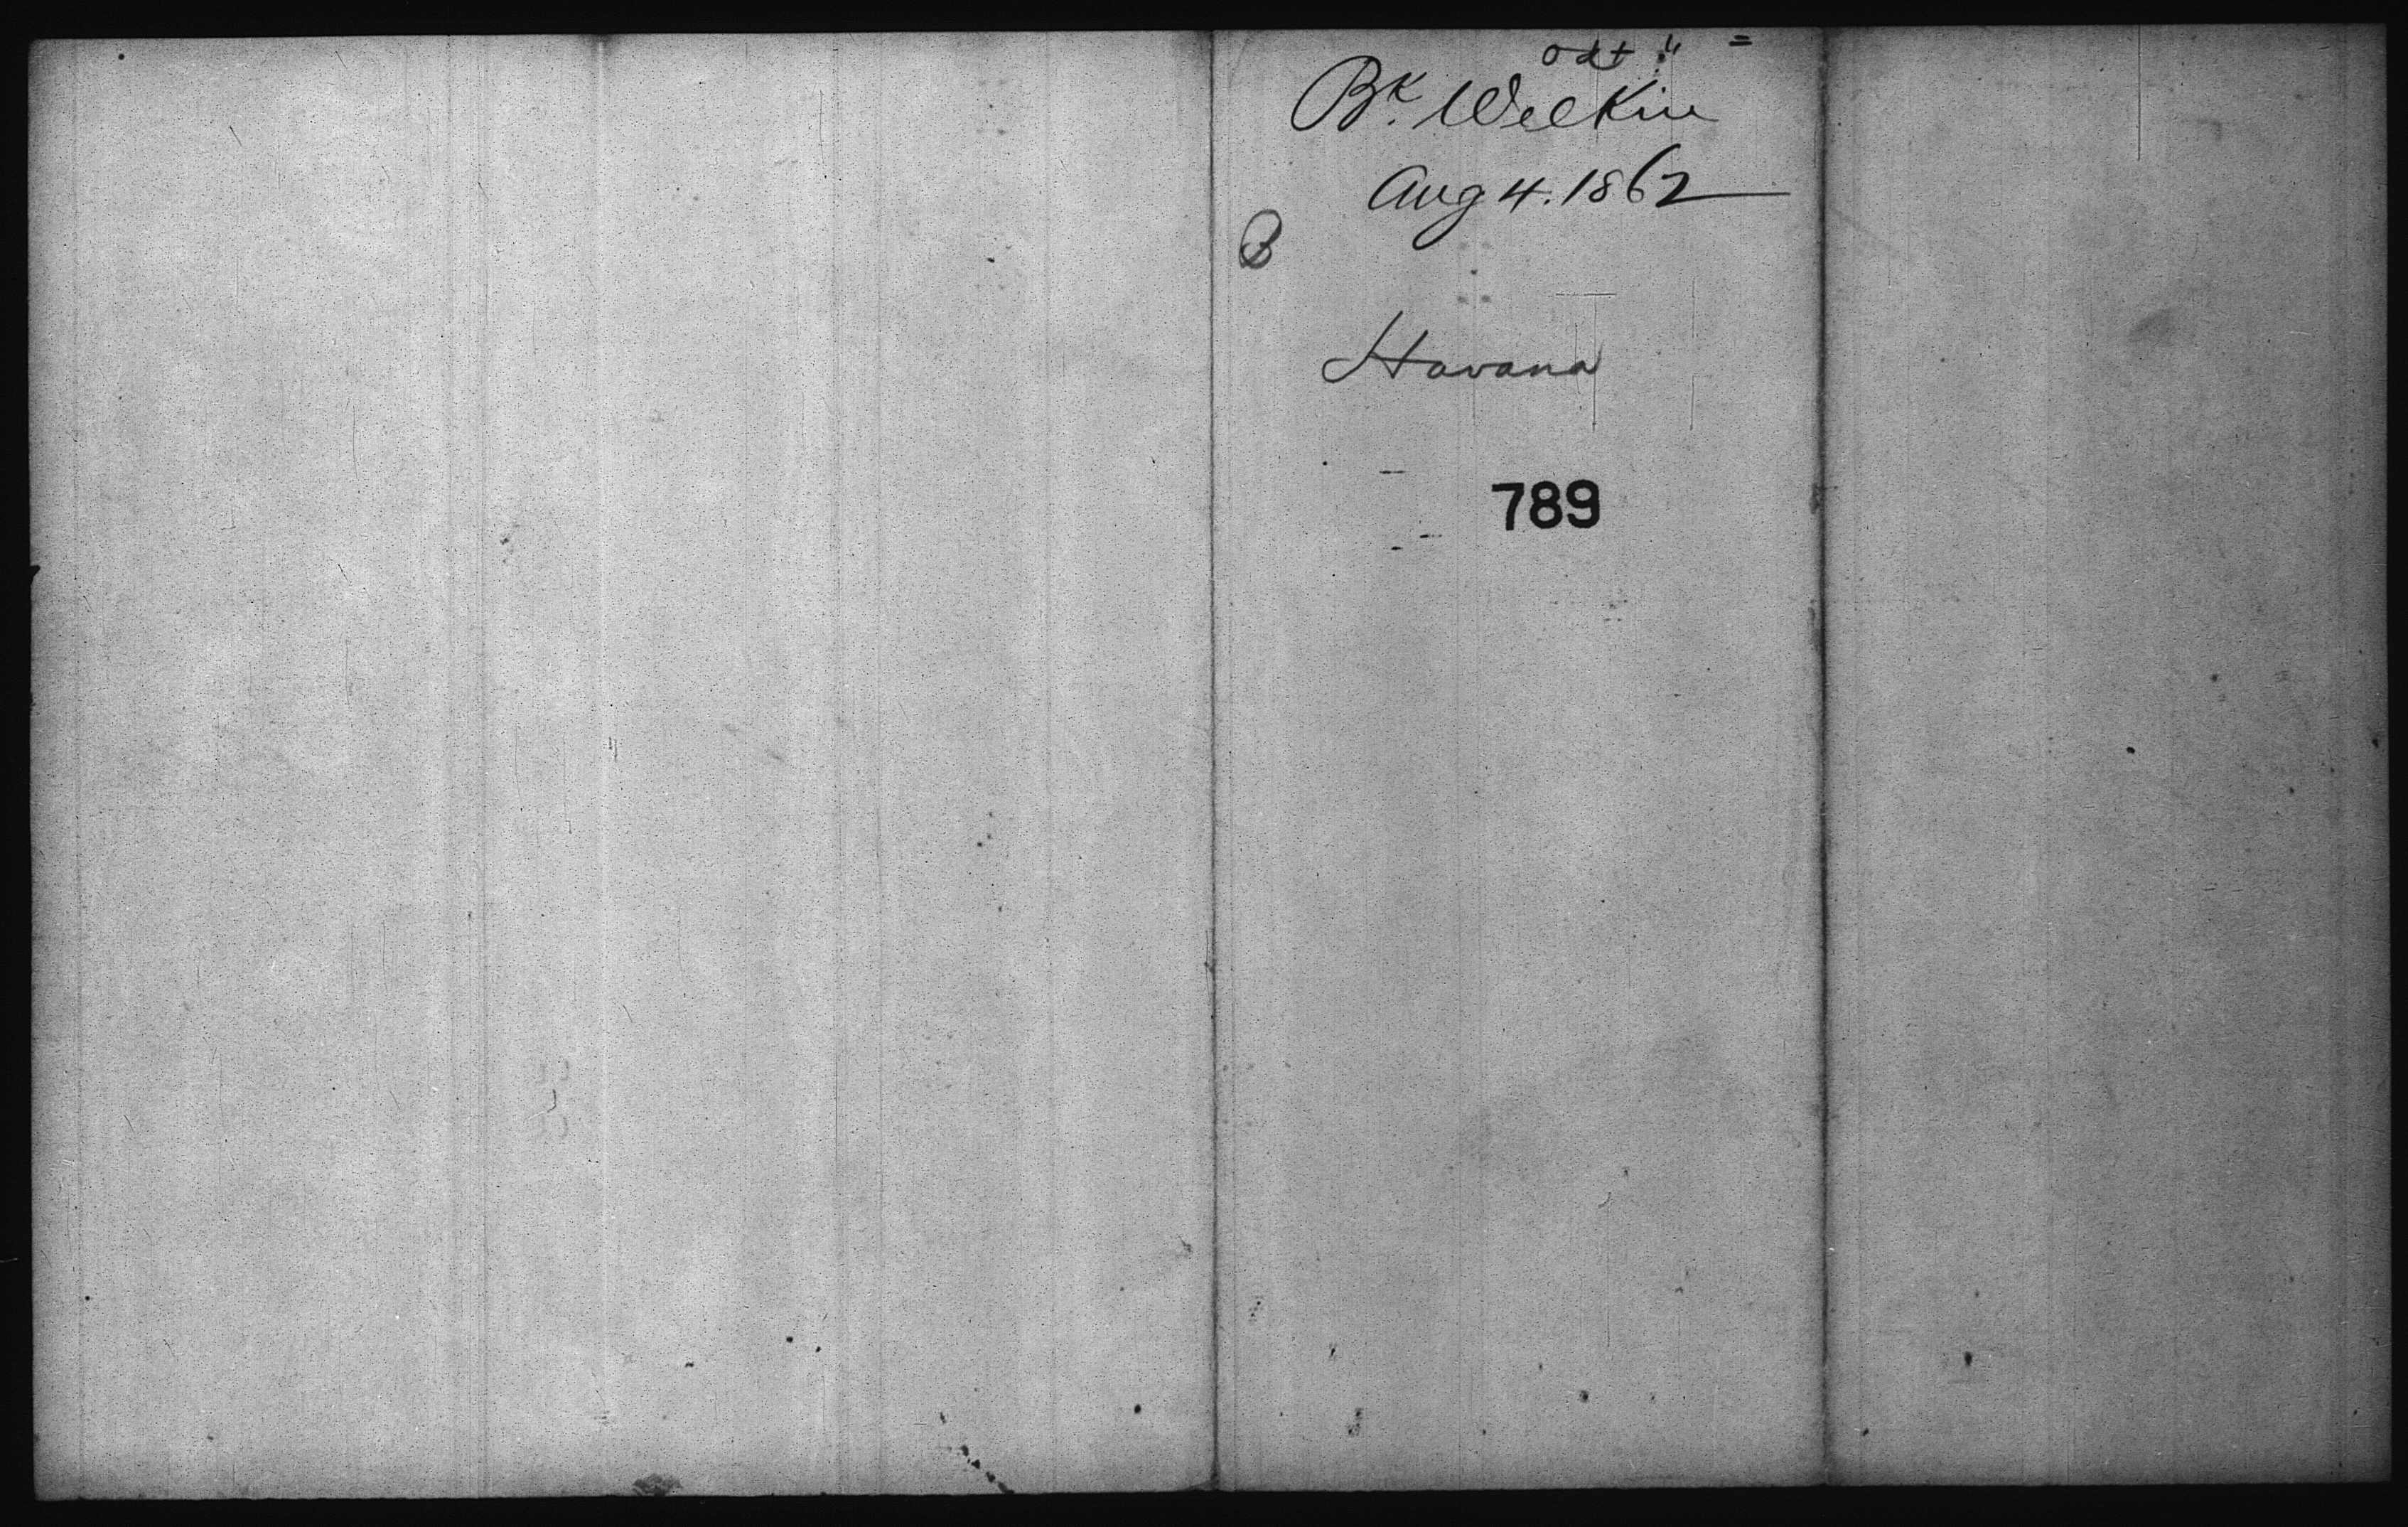 Bk. Welkin
Aug 4. 1862
Havana
789